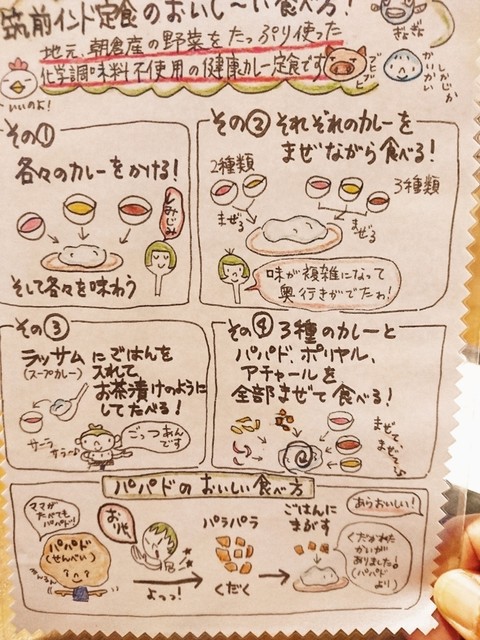 筑前インド定食のおいし〜い食べ方!
地元、朝倉産の野菜をたっぷり使った
化学調味料不使用の健康カレー定食です
ブヒブヒ
いいのよ!
その①
各々のカレーをかける!
しみじみ
そして各々を味わう
その② それぞれのカレーを
まぜながら食べる!
2種類
3種類
まぜる
まぜる
味が複雑になって
奥行きがでたわ!
その③
ラッサムにごはんを
(スープカレー)
入れて
お茶漬けのように
してたべる!
サーラ
サラ〜
ごっつぁん
です
その④ 3種のカレーと
パパド、ポリヤル、
アチャールを
全部まぜて食べる!
まぜて、
まぜて〜
パパドのおいしい食べ方
ママが
たべても
パパド!
パパド
(せんべい)
おりゃ
よっ!
パラパラ
くだく
ごはんに
まぶす
あらおいしい!
くだかれた
かいが
ありました!
(パパド
より)